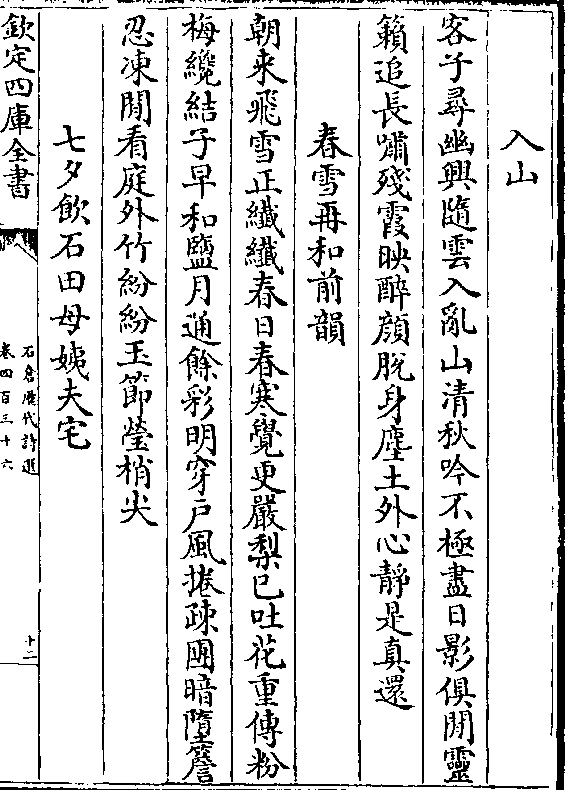 入山
客子尋幽興隨雲入亂山清秋吟不極盡日影俱閒靈
籟追長嘯殘霞映醉顔脫身塵土外心靜是真還
春雪再和前韻
朝來飛雪正纖纖春日春寒覺更嚴梨已吐花重傳粉
梅纔結子早和鹽月通餘彩明穿戶風捲疎團暗墮簷
忍凍閒看庭外竹紛紛玉節瑩梢尖
七夕飲石田母姨夫宅
欽定四庫全書
石倉歷代詩選
卷四百三十六
十二